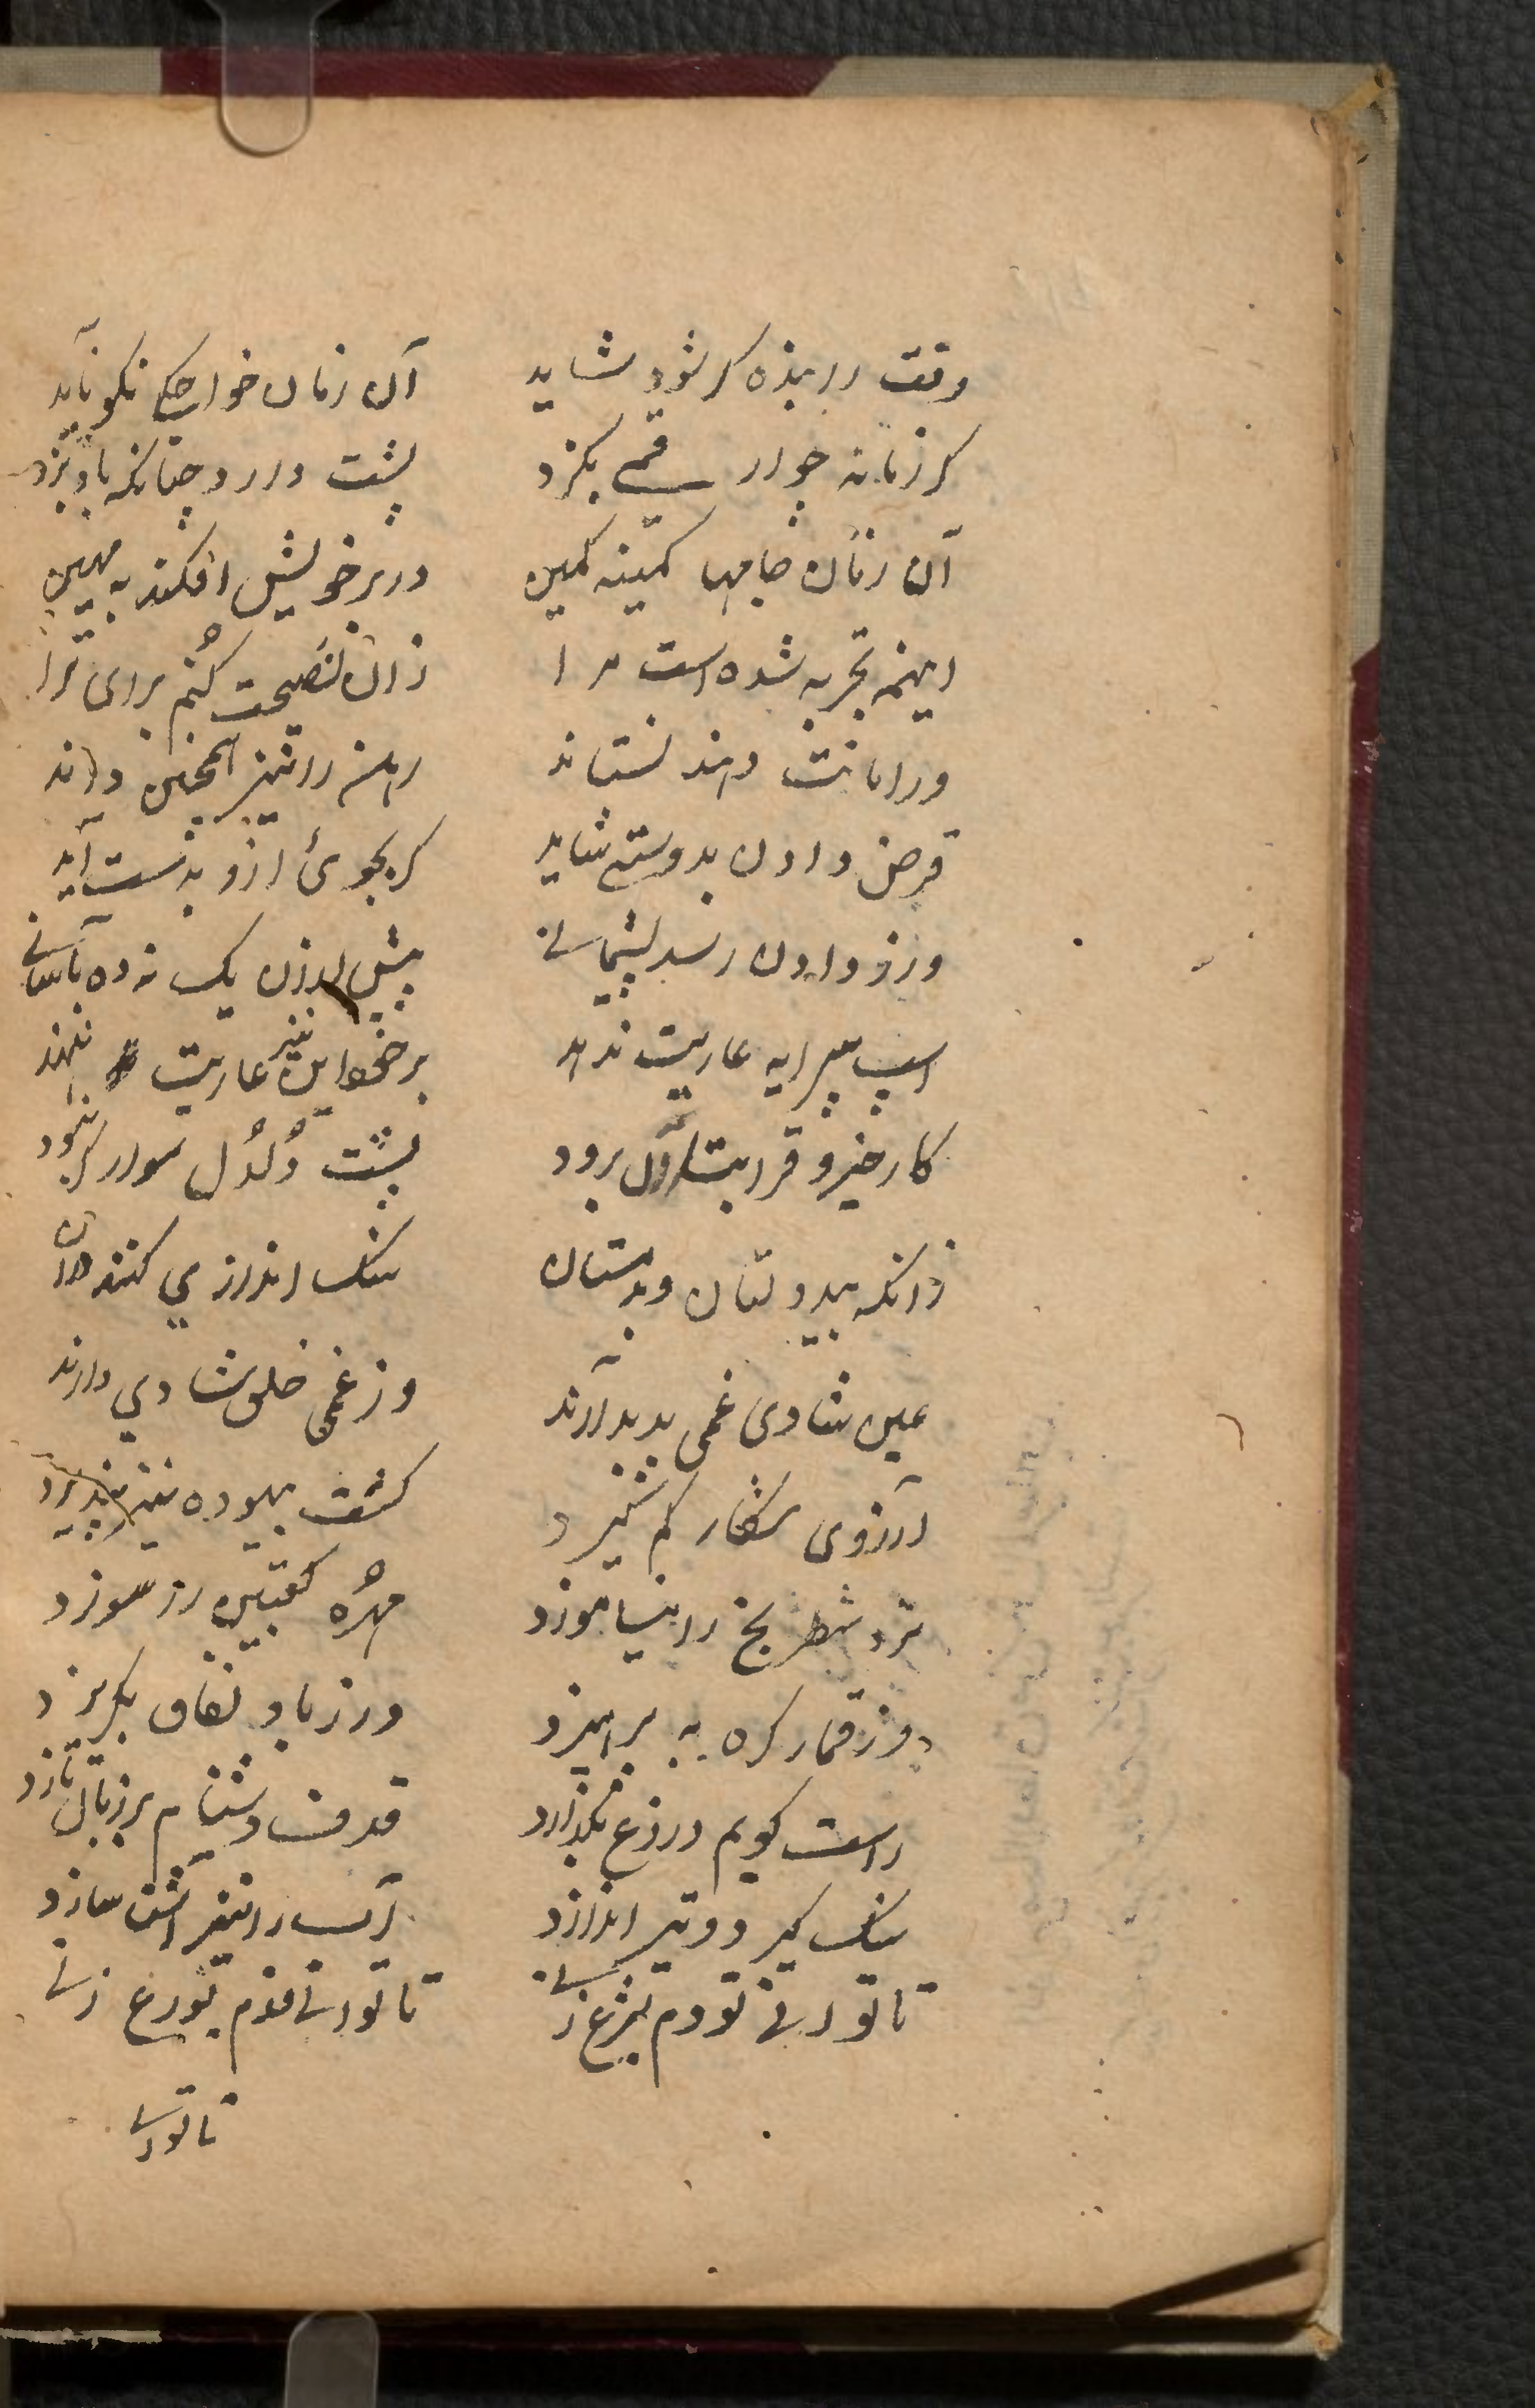 وقت را بنده کر شود شاید آن زمان خواجکی نکو ناید
کر زمانه چو از قحی بکزد پشت دارد چنانکه باد بزد
آن زمان جامها کمینه کمین در بر خویش افکند به مهین
اینهمه تجربه شده است مرا زان نصیحت کنم برای ترا
ور امانت دهند نستاند رهن را نیز همچنین داند
قرض دادن بدوستی شاید کر بجوئ ازو بدست آید
ورزو دادن رسد پشیمانی پیش یک نه ده بآسانی
اسپ پیرایه عاریت ندهد بر عاریت ننهد
کار خیر و قرابت اول برود پشت دُلدُل سوار کر نبود
زانکه بیدولتان و بدمستان سنک اندازی کنند
عین شادی غمی پدید آرند وز غمی خلق شادی دارند
آرزوی شکار کم کیرد کشت بیهوده نیز نپذیرد
نرد شطرنج را نیاموزد مهرهٔ کعبتین را سوزد
وز قمار کره به پرهیزد ور زیاد نفاق بکریزد
راست کویم دروغ نکذارد قدف دشنام بر زبان نارد
سنک کیرد و تیر اندازد آب را نیز آشنا سازد
تا توانی تو دم بشرع زنی تا توانی قدم بورع زنی
تا توانی